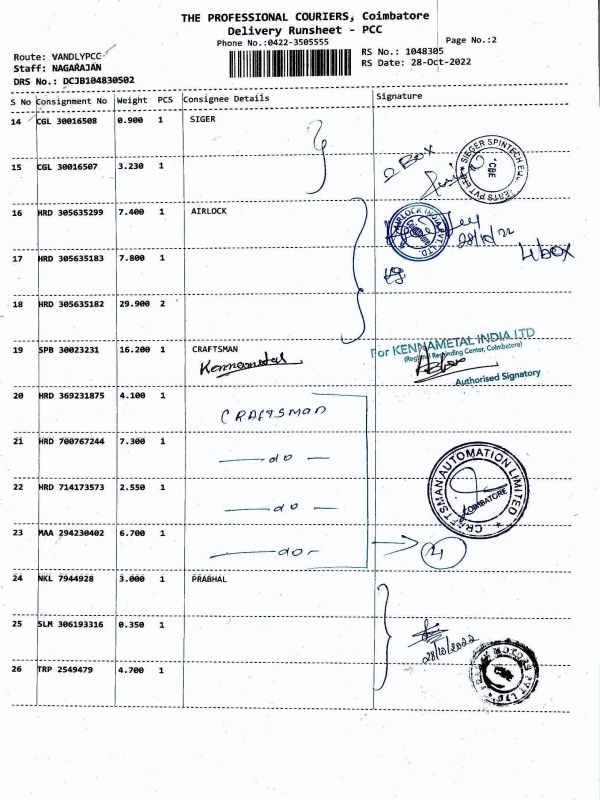 THE PROFESSIONAL COURIERS, Coimbatore
Delivery Runsheet - PCC
Phone No.:0422-3505555
Page No.:2
Route: VANDLYPCC
Staff: NAGARAJAN
DRS No.: DCJB104830502
RS No.: 1048305
RS Date: 28-Oct-2022
S No Consignment No Weight PCS Consignee Details Signature
14 CGL 30016508 0.900 1 SIGER
15 CGL 30016507 3.230 1
2 BOX
SIEGER SPINTECH
CBE
16 HRD 305635299 7.400 1 AIRLOCK
AIRLOCK INDIA PVT. LTD.
28/10/22
17 HRD 305635183 7.800 1
4 box
18 HRD 305635182 29.900 2
19 SPB 30023231 16.200 1 CRAFTSMAN
Kennametal
For KENNAMETAL INDIA LTD
Coimbatore)
Authorised Signatory
20 HRD 369231875 4.100 1
CRAFTSMAN
21 HRD 700767244 7.300 1
do
22 HRD 714173573 2.550 1
do
CRAFTSMAN AUTOMATION LIMITED
COIMBATORE
23 MAA 294230402 6.700 1
do
4
24 NKL 7944928 3.000 1 PRABHAL
25 SLM 306193316 0.350 1
28/10/2022
26 TRP 2549479 4.700 1
MOTORS PVT LTD